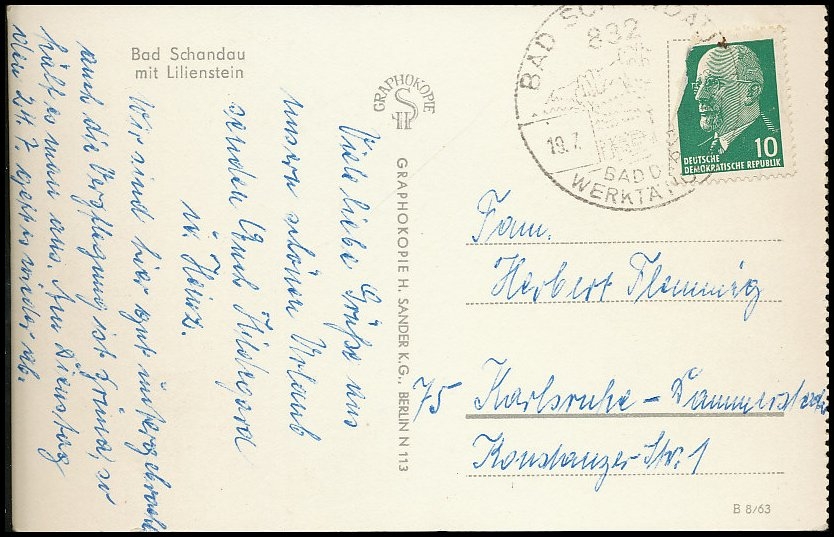 Bad Schandau
mit Lilienstein
GRAPHOKOPIE
SH
GRAPHOKOPIE H. SANDER K.G., BERLIN N 113
BAD SCHANDAU
832
19.7.
BAD D
WERKTÄ
10
DEUTSCHE
DEMOKRATISCHE REPUBLIK
Viele liebe Grüße aus
unserm schönen Urlaub
senden Euch Hildegard
u. Heinz.
Wir sind hier gut untergebracht
auch die Verpflegung ist prima, so
hält es man aus. Am Dienstag
den 24.7. geht's wieder ab.
Fam.
Herbert Flemmig
75 Karlsruhe-
Konstanzer Str. 1
B 8/63